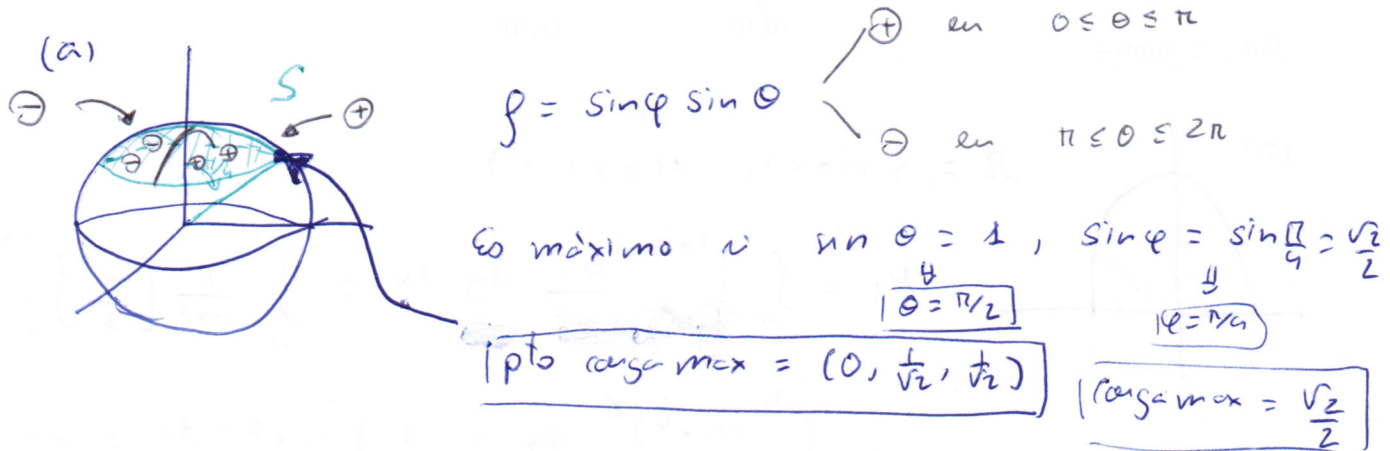 (a)
⊖ S ⊕
⊖ ⊖ ⊕ ⊕
⊖ π/4
ρ = sin φ sin θ
⊕ en 0 ≤ θ ≤ π
⊖ en π ≤ θ ≤ 2π
Es máximo si sin θ = 1, sin φ = sin π/4 = √2/2
⇓ ⇓
θ = π/2 φ = π/4
pto carga max = (0, 1/√2, 1/√2)
carga max = √2/2